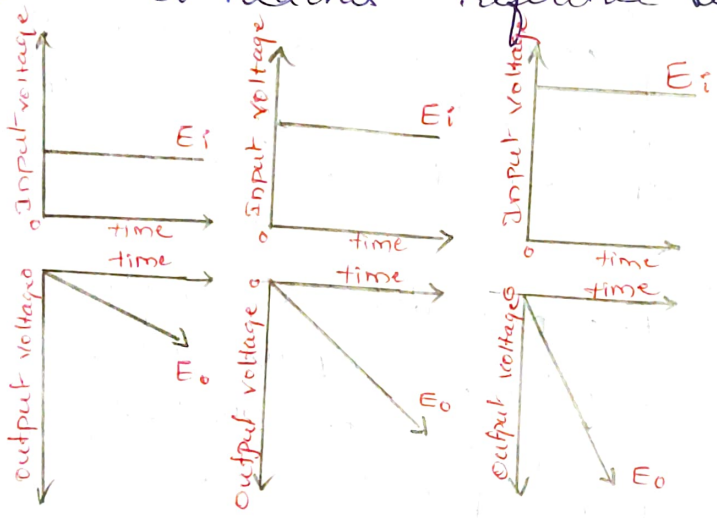 Reference
Input voltage
Ei
0
time
Input voltage
Ei
0
time
Input voltage
Ei
0
time
output voltage
0
time
Eo
output voltage
0
time
Eo
output voltage
0
time
Eo